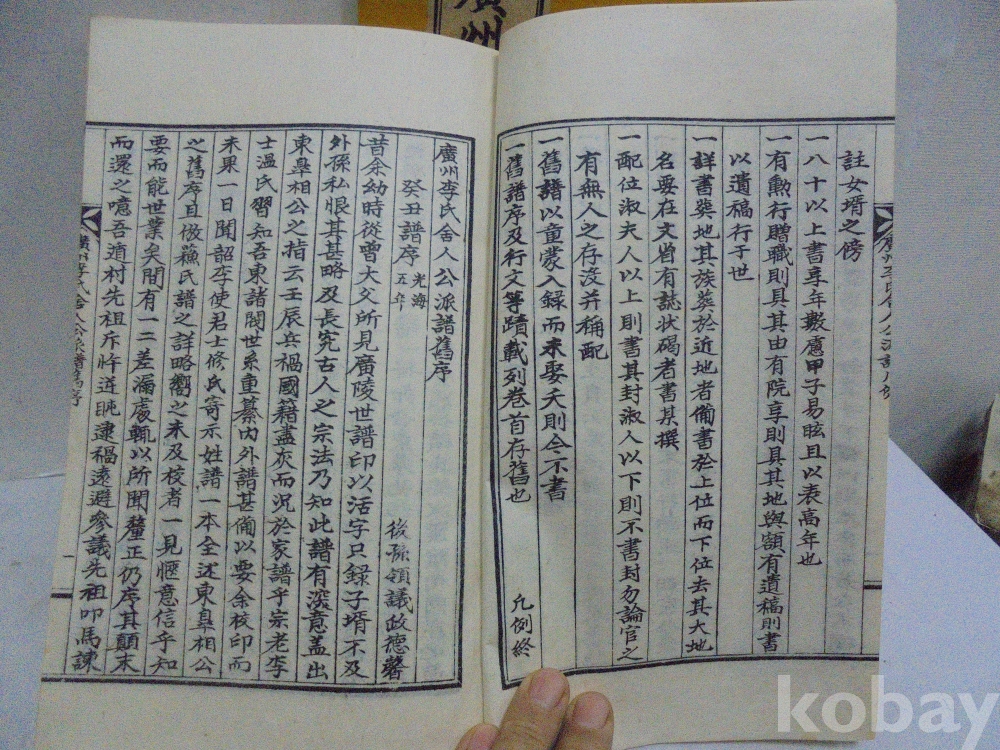 廣州
註女壻之傍
一八十以上書享年數慮甲子易眩且以表高年也
一有勲行贈職則具其由有院享則具其地與額有遺稿則書
以遺稿行于世
一詳書葬地其族葬於近地者備書於上位而下位去其大地
名要在文省有誌狀碣者書某撰
一配位淑夫人以上則書其封淑人以下則不書封勿論官之
有無人之存沒并稱配
一舊譜以童蒙入録而未娶夭則今不書
一舊譜序及行文等蹟載列卷首存舊也
凡例終
廣州李氏舍人公派譜舊序
癸丑譜序 光海五年
後孫領議政德馨
昔余幼時從曾大父所見廣陵世譜印以活字只録子壻不及
外孫私恨其甚略及長究古人之宗法乃知此譜有深意盖出
東臯相公之指云壬辰兵禍國籍盡灰而況於家譜乎宗老李
士溫氏習知吾東諸閥世系重纂內外譜甚備以要余校印而
未果一日聞韶李使君士修氏寄示姓譜一本全述東臯相公
之舊序且倣蘓氏譜之詳略嚮之未及校者一見愜意信乎知
要而能世業矣間有一二差漏處輒以所聞釐正仍序其顛末
而還之噫吾遁村先祖斥旽逮禍遠避參議先祖叩馬諫
一
kobay